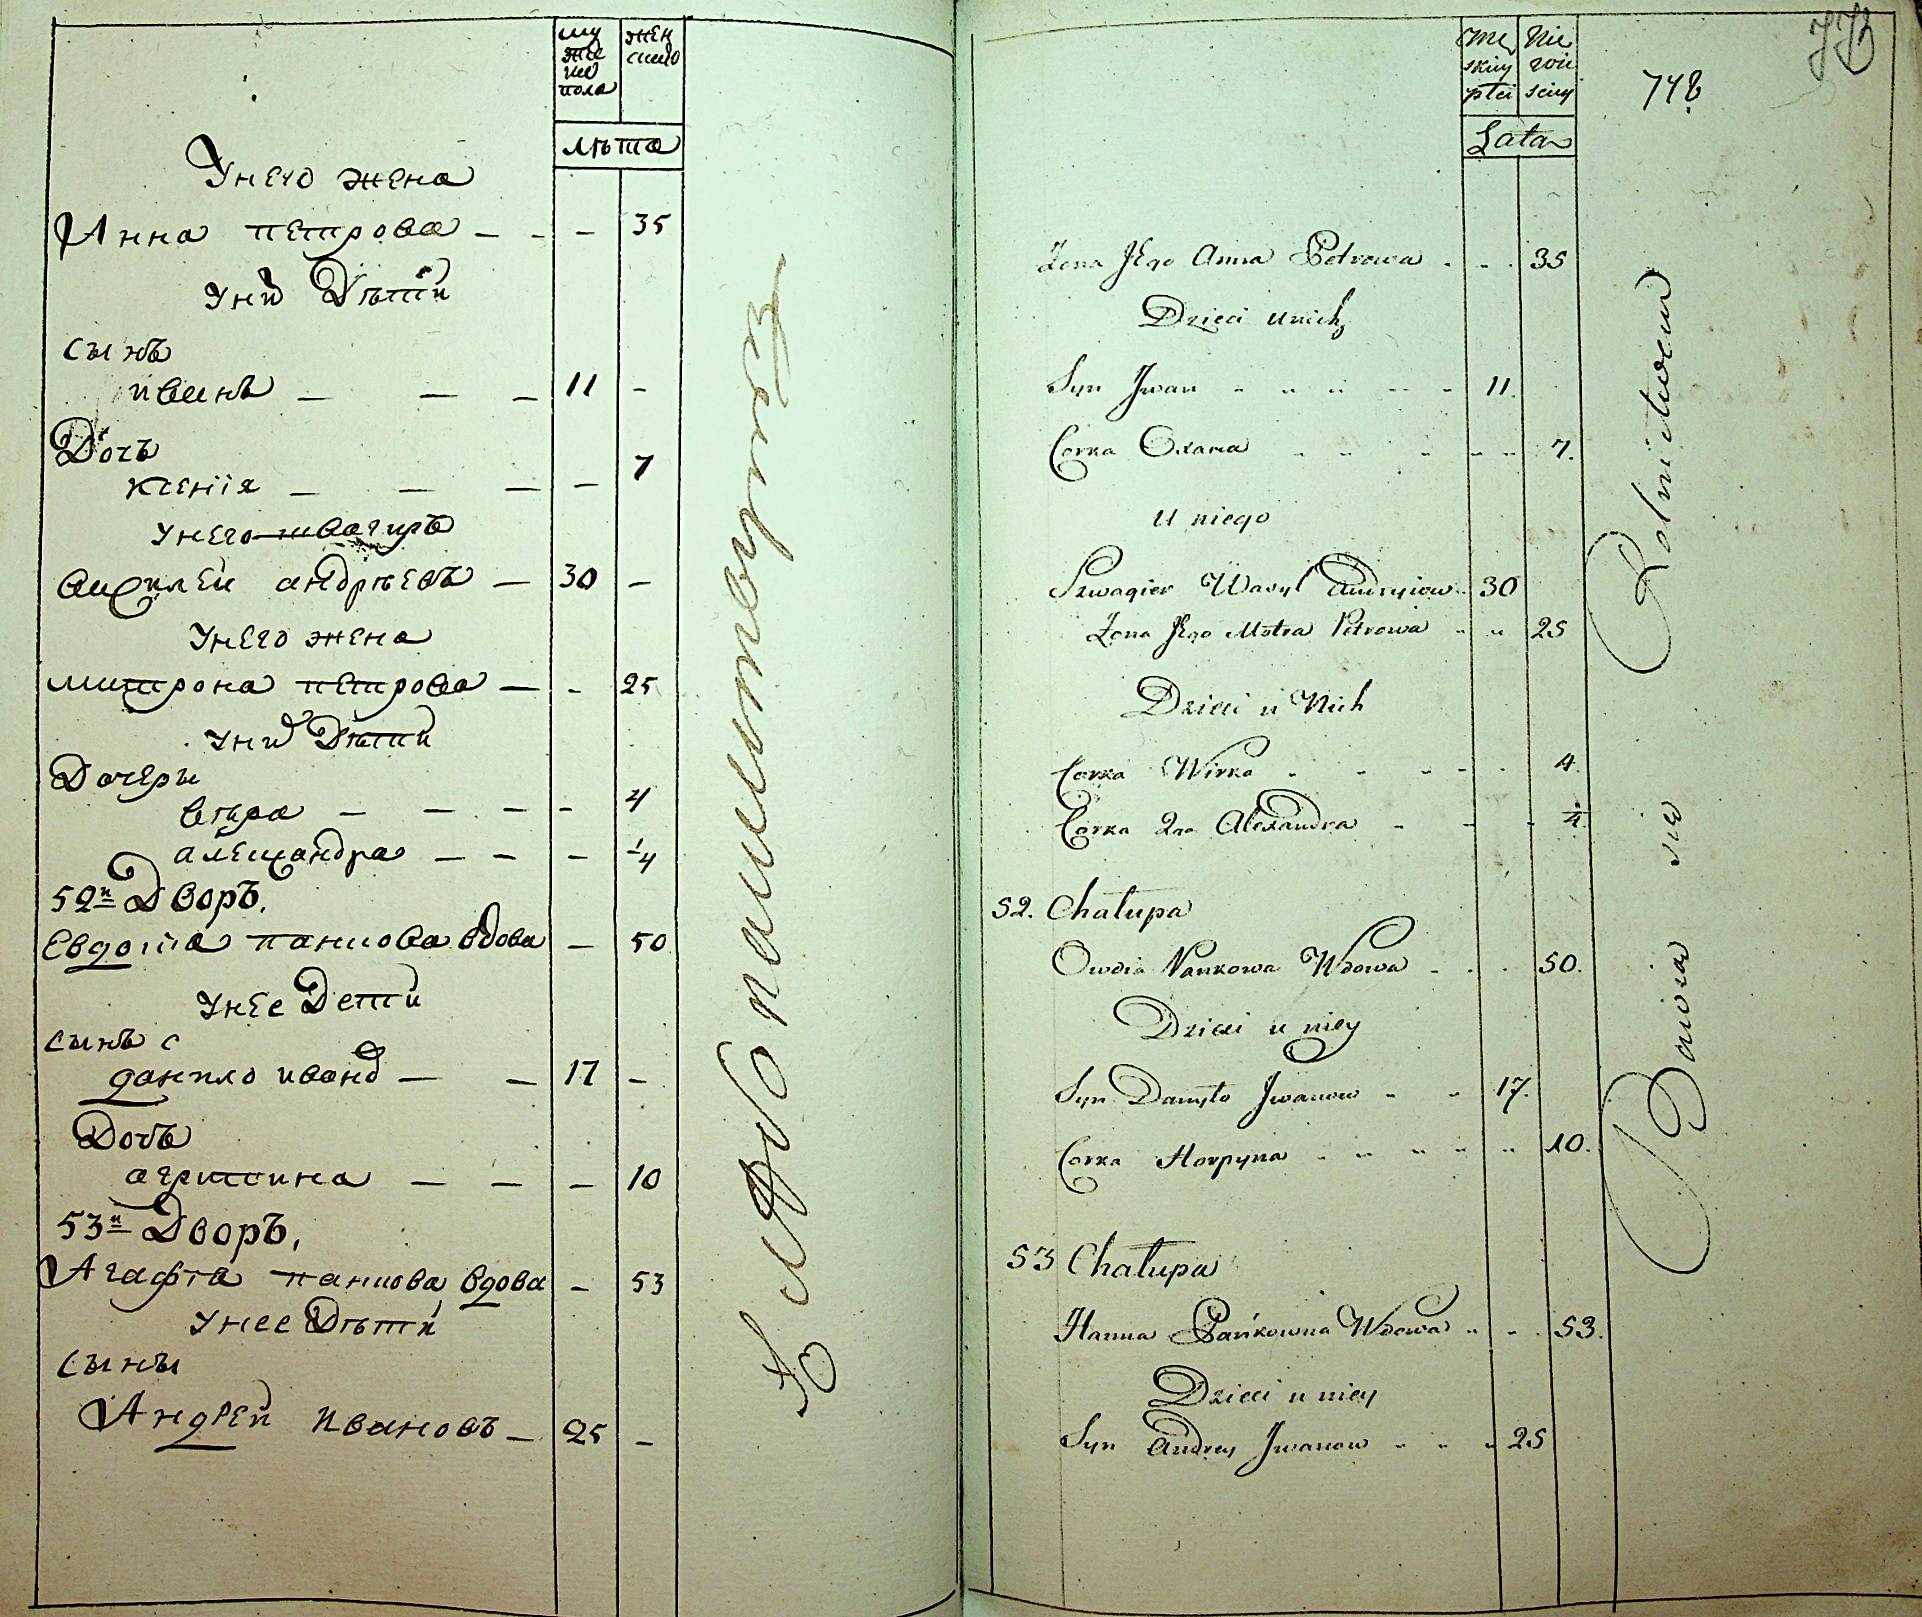 му
же
ска
пола
жен
скаго
лѣта
У него жена
Анна петрова — - — 35
У них Дѣти
Сынъ
иванъ — — — 11 —
Дочь
ксенія — — — — 7
У него швагиръ
василеи андрѣевъ — 30 —
У него жена
митрона петрова — - 25
У них Дѣти
Дочеры
вѣра — — — — 4
александра — — — ¼
52й Дворъ,
Евдокіа панкова вдова — 50
У нее Дети
Сынъ
данило иванов — — 17 —
Дочъ
агрипина — — — 10
53й Дворъ,
Агафіа панкова вдова — 53
У нее Дѣти
Сыны
Андрей Ивановъ — 25 —
Męs
skiey
płci
Nie
wie
sciey
Lata
748
Zona Jego Anna Petrowa 35
Dzieci u nich
Syn Jwan 11.
Corka Oxana 7.
U niego
Szwagier Wasyl Andryiow 30
Zona Jego Motra Petrowa 25
Dzieci u Nich
Corka Wirka 4.
Corka 2ga Alexandra ¼.
52. Chałupa
Owdia Pankowa Wdowa 50.
Dzieci u niey
Syn Danyło Jwanow 17.
Corka Horpyna 10.
53 Chałupa
Hanna Pańkowna Wdowa 53.
Dzieci u niey
Syn Andrey Jwanow 25
Bawia sie Rolnictwem